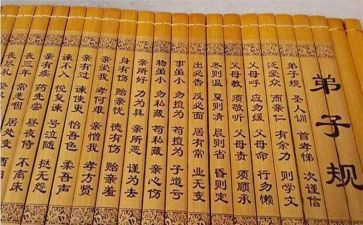 弟子规
弟子规 圣人训 首孝悌 次谨信
泛爱众 而亲仁 有余力 则学文
父母呼 应勿缓 父母命 行勿懒
父母教 须敬听 父母责 须顺承
冬则温 夏则清 晨则省 昏则定
出必告 反必面 居有常 业无变
事虽小 勿擅为 苟擅为 子道亏
物虽小 勿私藏 苟私藏 亲心伤
亲所好 力为具 亲所恶 谨为去
身有伤 贻亲忧 德有伤 贻亲羞
亲爱我 孝何难 亲憎我 孝方贤
亲有过 谏使更 怡吾色 柔吾声
谏不入 悦复谏 号泣随 挞无怨
亲有疾 药先尝 昼夜侍 不离床
丧三年 常悲咽 居处变 酒
丧尽礼